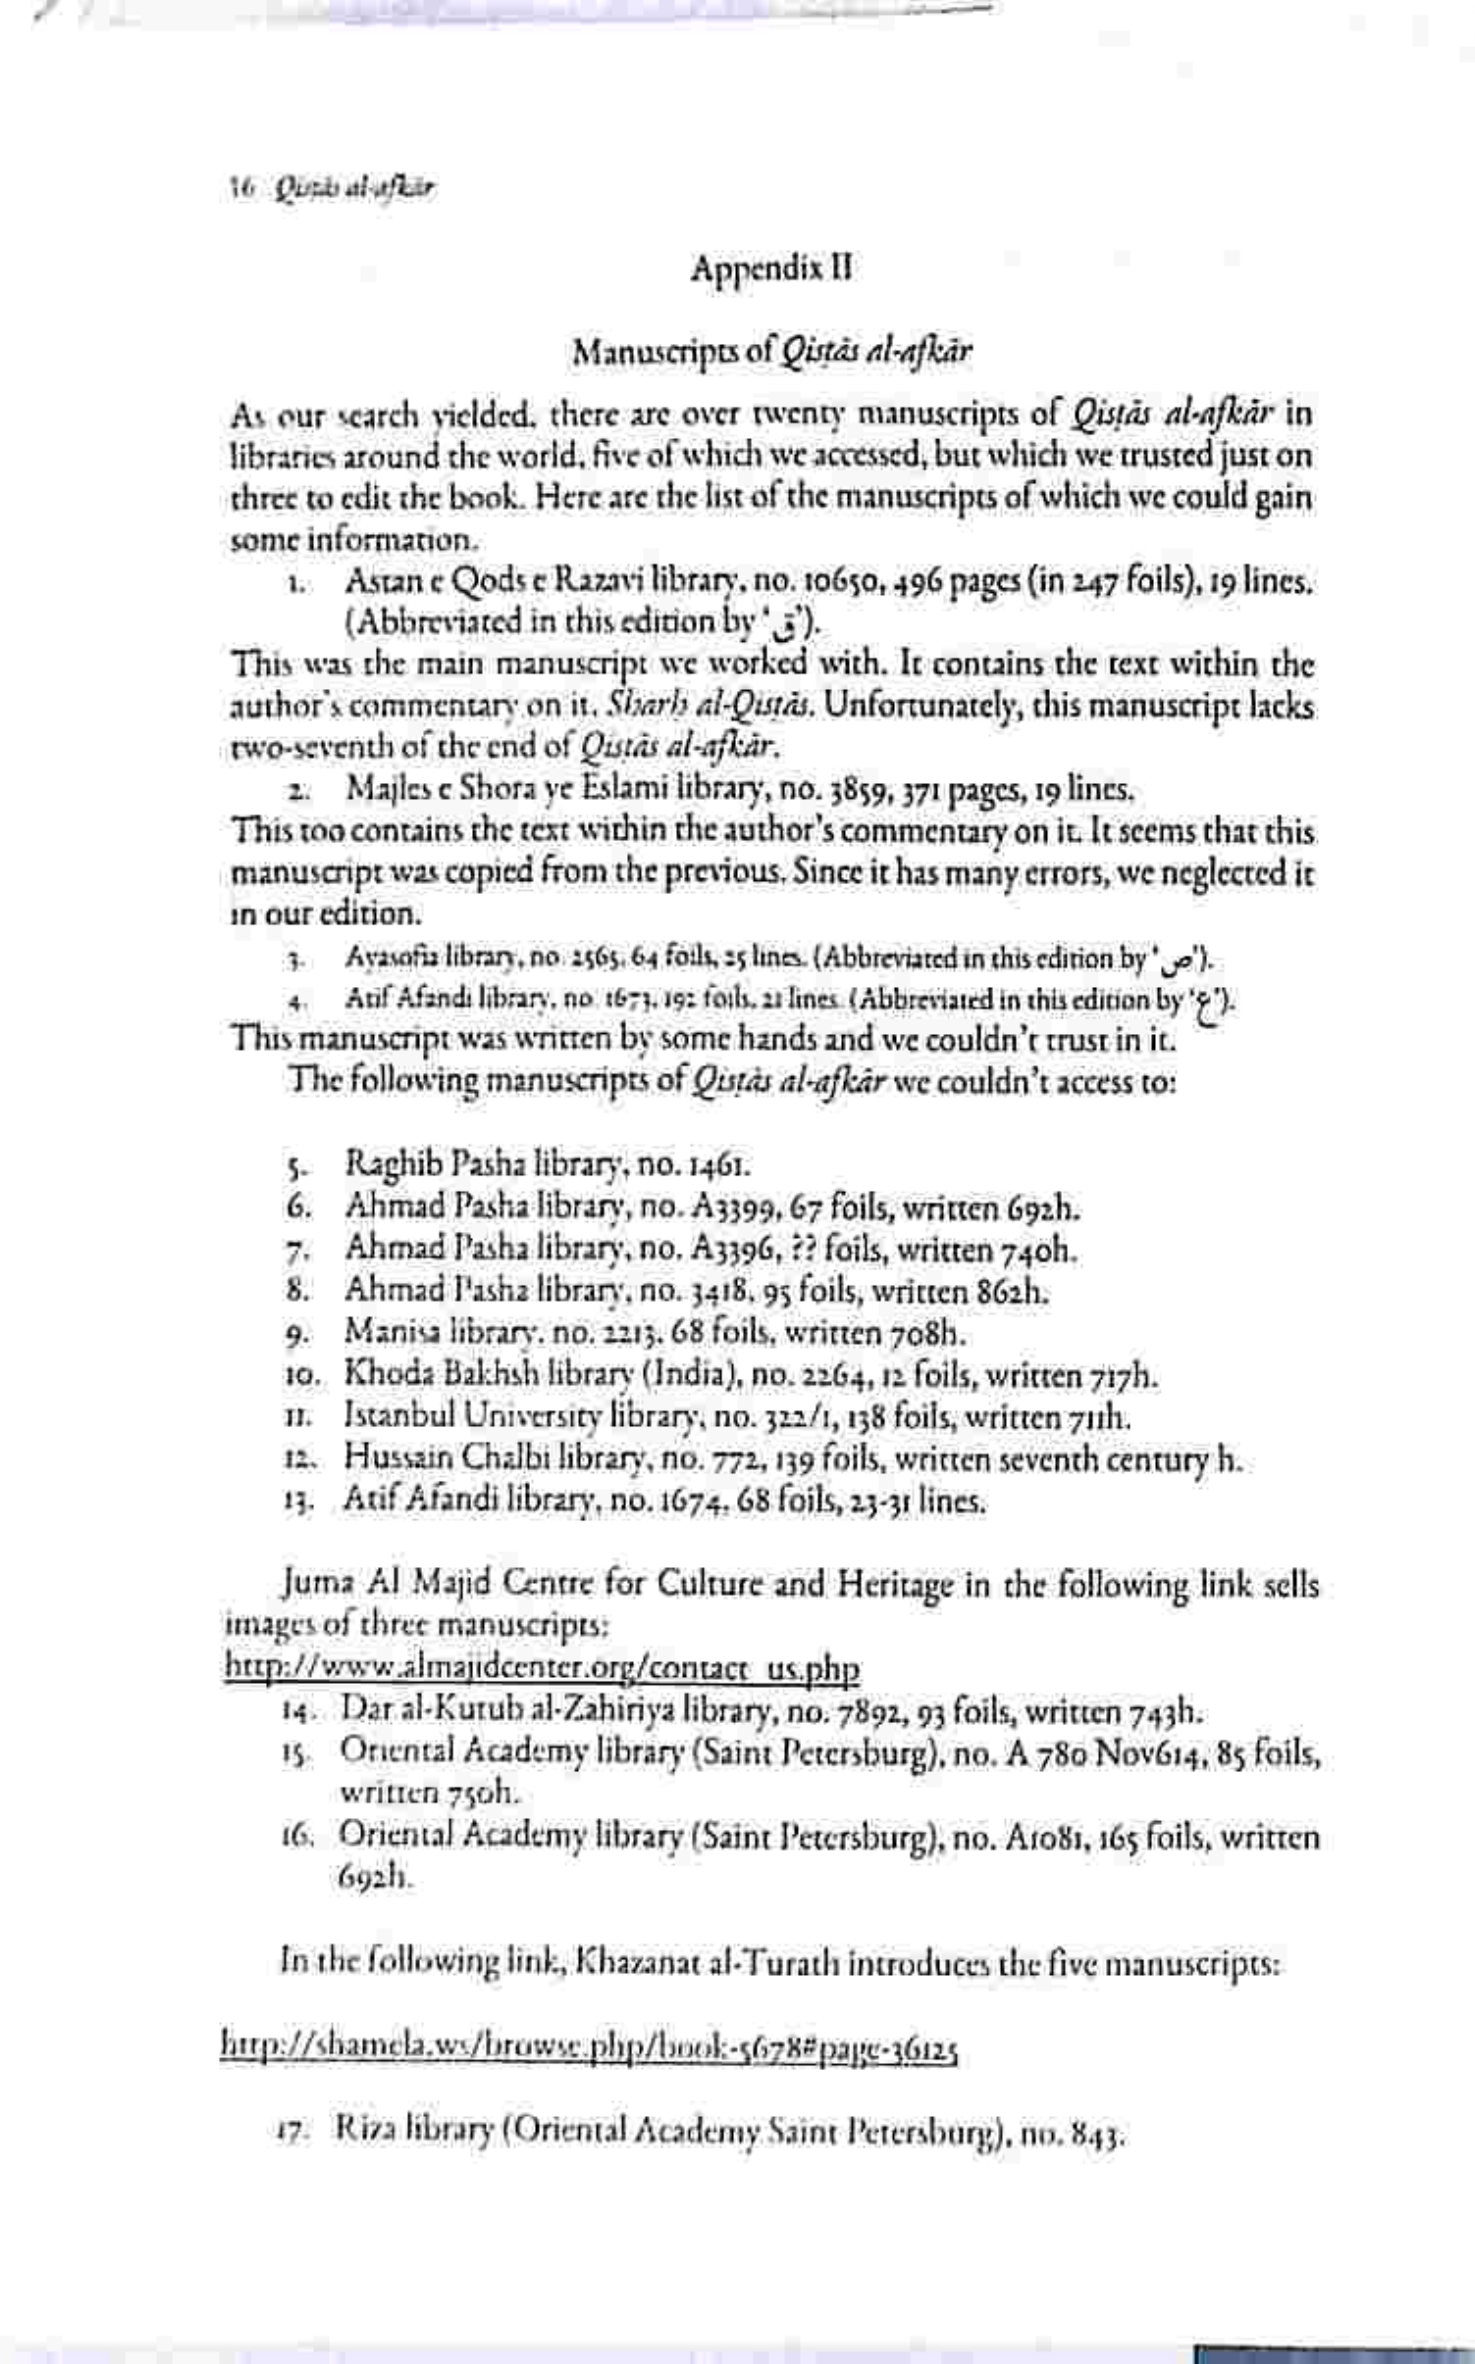 16 Qisṭās al-afkār
Appendix II
Manuscripts of Qisṭās al-afkār
As our search yielded, there are over twenty manuscripts of Qisṭās al-afkār in
libraries around the world, five of which we accessed, but which we trusted just on
three to edit the book. Here are the list of the manuscripts of which we could gain
some information.
1. Astan e Qods e Razavi library, no. 10650, 496 pages (in 247 foils), 19 lines.
(Abbreviated in this edition by ‘ق’).
This was the main manuscript we worked with. It contains the text within the
author's commentary on it, Sharḥ al-Qisṭās. Unfortunately, this manuscript lacks
two-seventh of the end of Qisṭās al-afkār.
2. Majles e Shora ye Eslami library, no. 3859, 371 pages, 19 lines.
This too contains the text within the author's commentary on it. It seems that this
manuscript was copied from the previous. Since it has many errors, we neglected it
in our edition.
3. Ayasofia library, no. 2565, 64 foils, 25 lines. (Abbreviated in this edition by ‘ص’).
4. Atif Afandi library, no. 1673, 192 foils, 21 lines. (Abbreviated in this edition by ‘ع’).
This manuscript was written by some hands and we couldn't trust in it.
The following manuscripts of Qisṭās al-afkār we couldn't access to:
5. Raghib Pasha library, no. 1461.
6. Ahmad Pasha library, no. A3399, 67 foils, written 692h.
7. Ahmad Pasha library, no. A3396, ?? foils, written 740h.
8. Ahmad Pasha library, no. 3418, 95 foils, written 862h.
9. Manisa library, no. 2213, 68 foils, written 708h.
10. Khoda Bakhsh library (India), no. 2264, 12 foils, written 717h.
11. Istanbul University library, no. 322/1, 138 foils, written 711h.
12. Hussain Chalbi library, no. 772, 139 foils, written seventh century h.
13. Atif Afandi library, no. 1674, 68 foils, 23-31 lines.
Juma Al Majid Centre for Culture and Heritage in the following link sells
images of three manuscripts:
http://www.almajidcenter.org/contact_us.php
14. Dar al-Kutub al-Zahiriya library, no. 7892, 93 foils, written 743h.
15. Oriental Academy library (Saint Petersburg), no. A 780 Nov614, 85 foils,
written 750h.
16. Oriental Academy library (Saint Petersburg), no. A1081, 165 foils, written
692h.
In the following link, Khazanat al-Turath introduces the five manuscripts:
http://shamela.ws/browse.php/book-5678#page-36125
17. Riza library (Oriental Academy Saint Petersburg), no. 843.